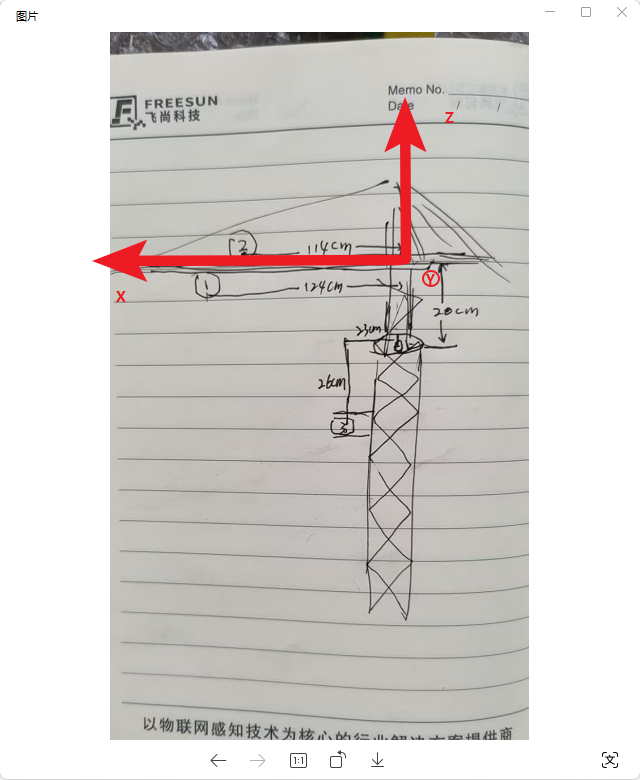 图片
Memo No.
FREESUN
飞尚科技
Date / /
Z
② 114cm
X
① 124cm
Y
20cm
23cm
26cm
③
以物联网感知技术为核心的行业解决方案提供商
1:1
文